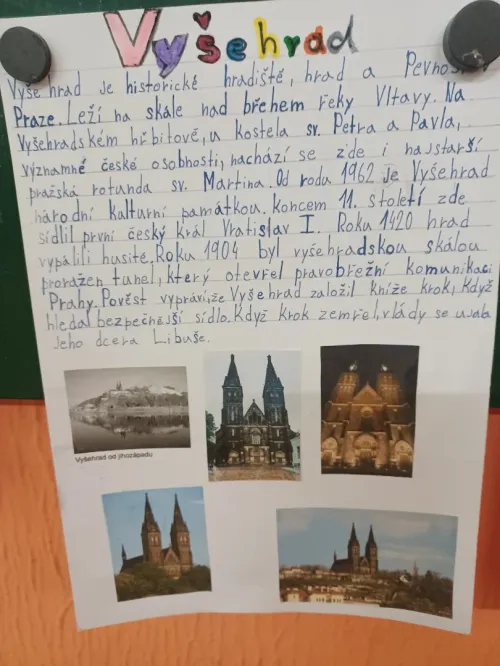 Vyšehrad
Vyšehrad je historické hradiště, hrad a Pevnost v
Praze. Leží na skále nad břehem řeky Vltavy. Na
Vyšehradském hřbitově, u kostela sv. Petra a Pavla,
významné české osobnosti, nachází se zde i nejstarší
pražská rotunda sv. Martina. Od rodu 1962 je Vyšehrad
národní kulturní památkou. Koncem 11. století zde
sídlil první český král Vratislav I. Roku 1420 hrad
vypálili husité. Roku 1904 byl vyšehradskou skálou
proražen tunel, který otevřel pravobřežní komunikaci
Prahy. Pověst vypráví, že Vyšehrad založil kníže krok, Když
hledal bezpečnější sídlo. Když krok zemřel, vlády se ujala
jeho dcera Libuše.
Vyšehrad od jihozápadu